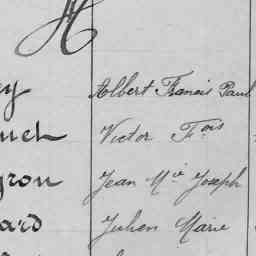 H
y Albert Francis Paul
uch Victor F.ois
gron Jean M.ie Joseph
ard Julien Marie